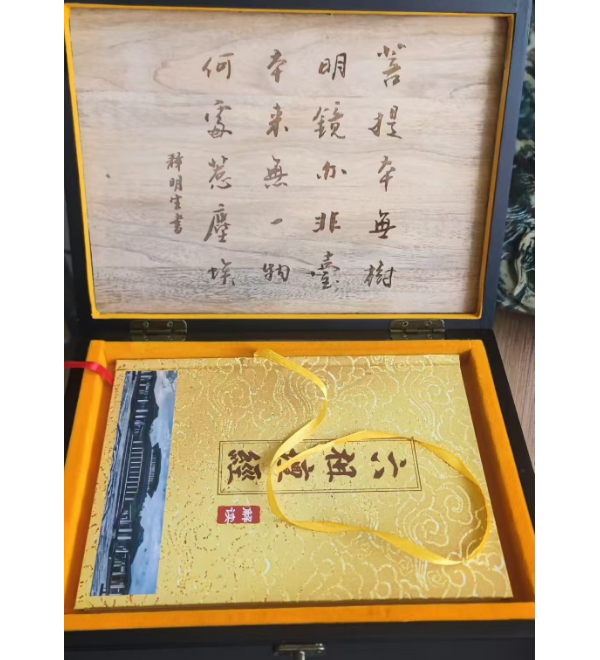 菩提本無樹
明鏡亦非臺
本来無一物
何處惹塵埃
釋明生書
六祖壇經
解读